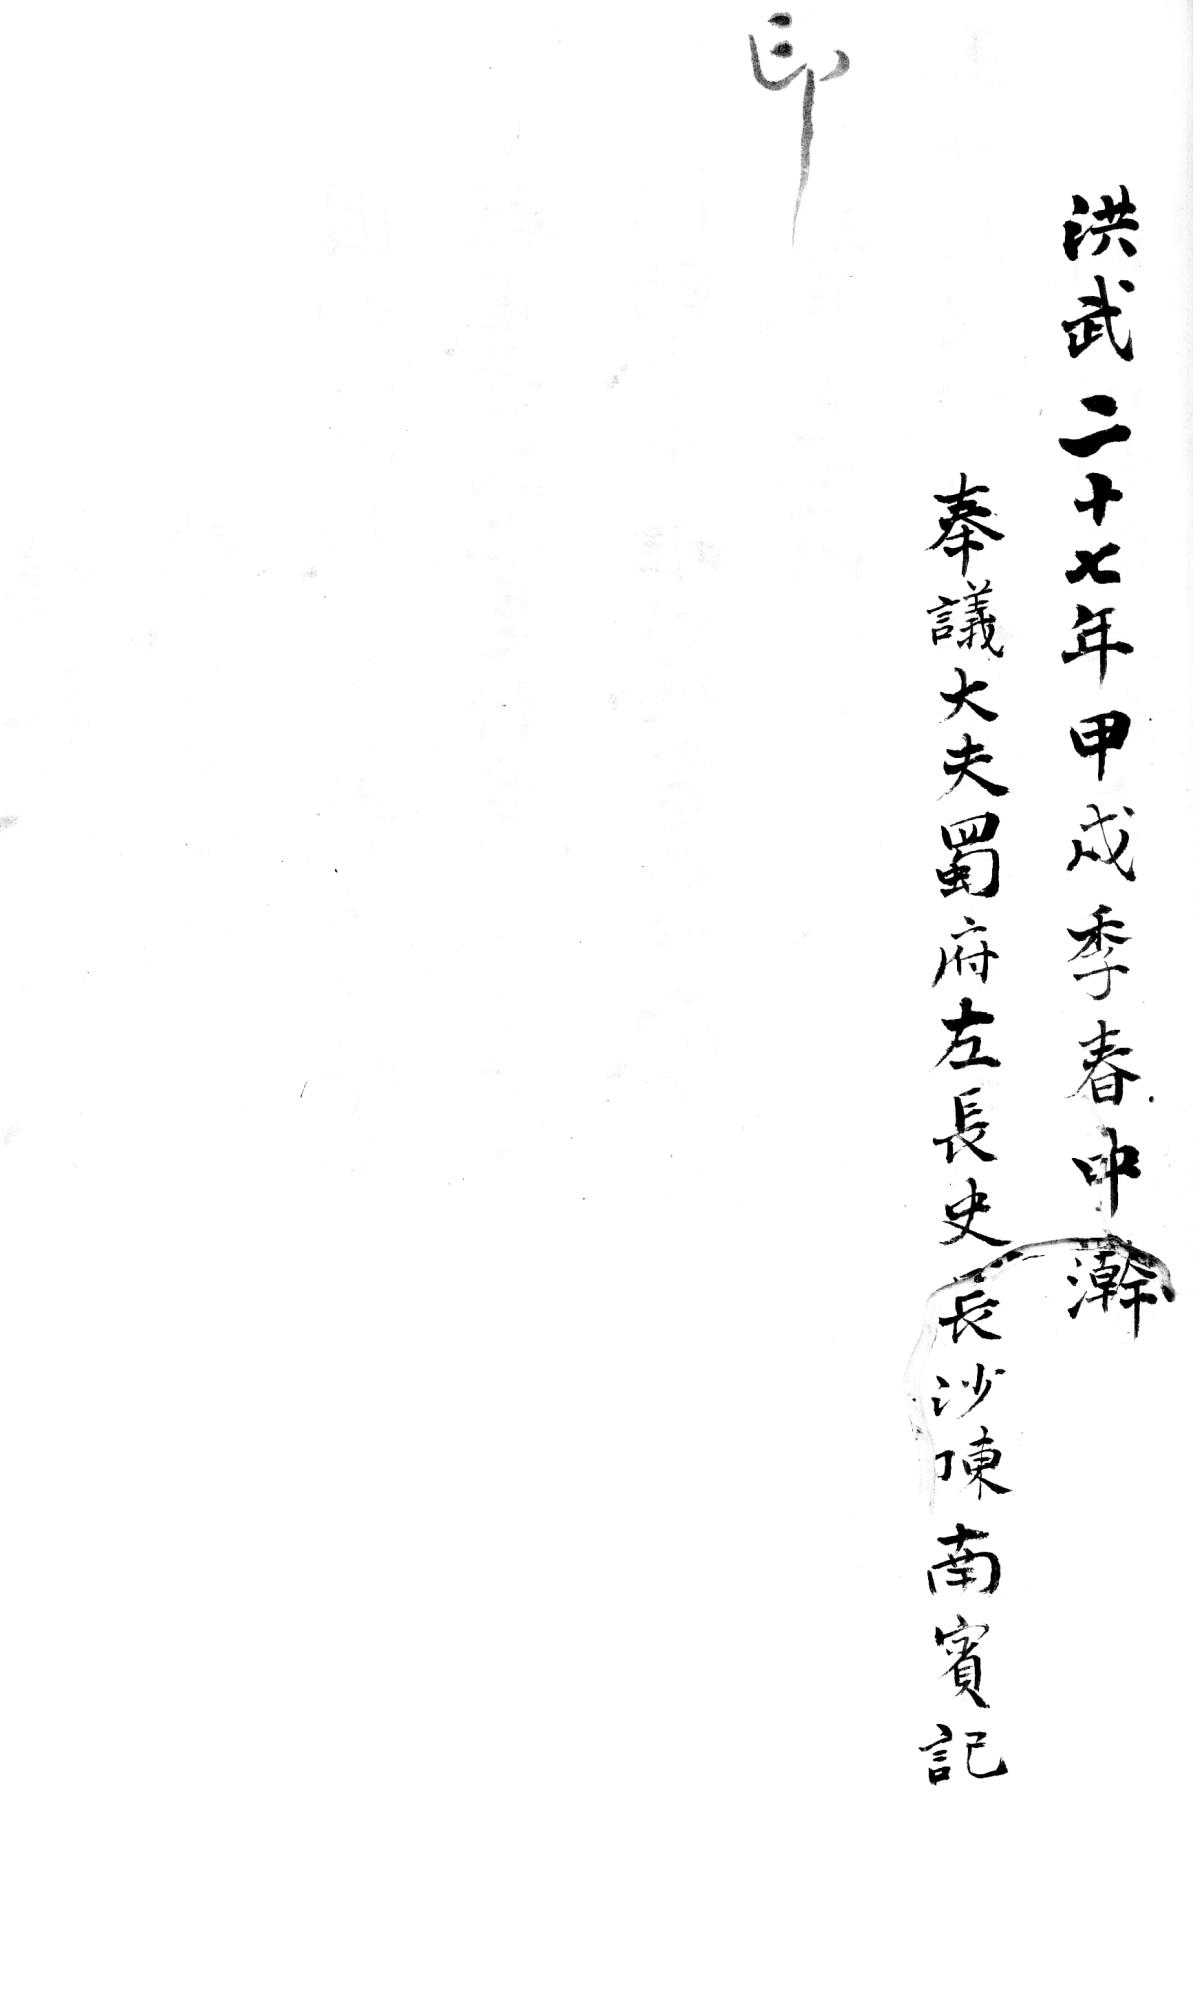 洪武二十七年甲戌季春中澣
奉議大夫蜀府左長史長沙陳南賓記
印